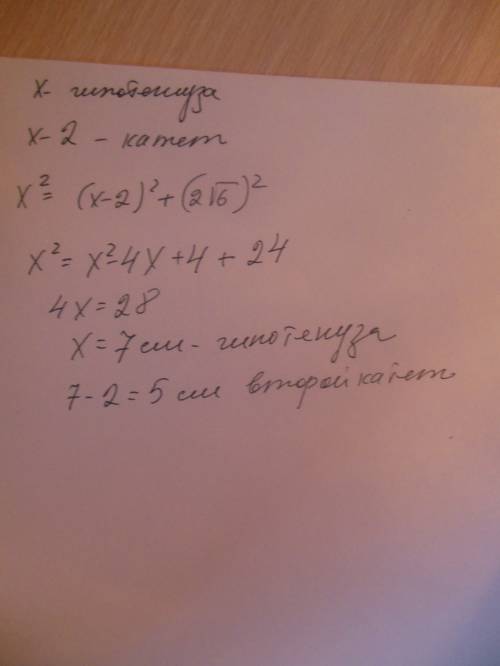 x - гипотенуза
x - 2 - катет
x² = (x-2)² + (2√6)²
x² = x² - 4x + 4 + 24
4x = 28
x = 7 см - гипотенуза
7 - 2 = 5 см второй катет